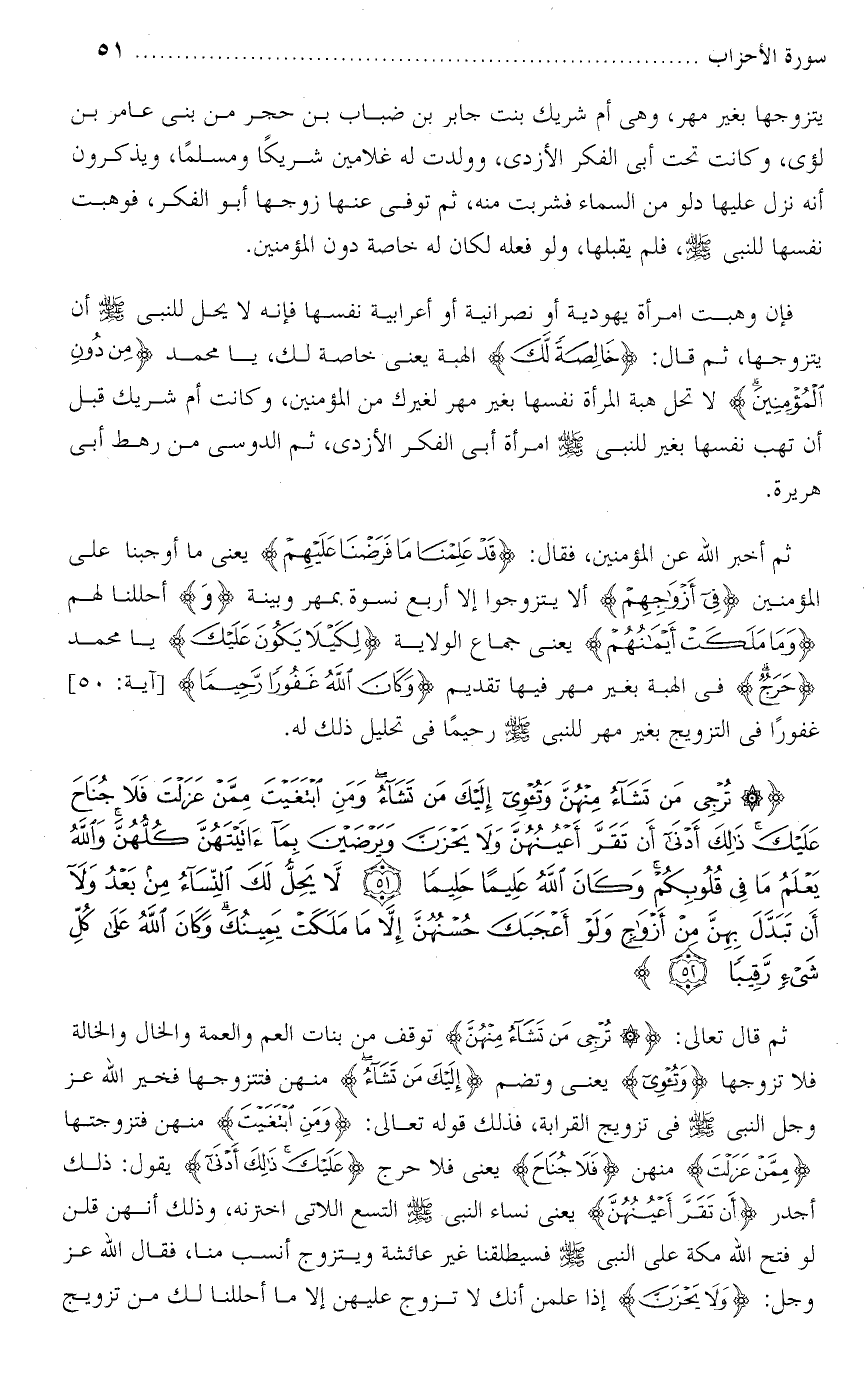 سورة الأحزاب ........................................................................ ٥١
يتزوجها بغير مهر، وهى أم شريك بنت جابر بن ضباب بن حجر من بنى عامر بن
لؤى، وكانت تحت أبى الفكر الأزدى، وولدت له غلامين شريكًا ومسلمًا، ويذكرون
أنه نزل عليها دلو من السماء فشربت منه، ثم توفى عنها زوجها أبو الفكر، فوهبت
نفسها للنبى ﷺ، فلم يقبلها، ولو فعله لكان له خاصة دون المؤمنين.
فإن وهبت امرأة يهودية أو نصرانية أو أعرابية نفسها فإنه لا يحل للنبى ﷺ أن
يتزوجها، ثم قال: ﴿خَالِصَةً لَّكَ﴾ الهبة يعنى خاصة لك، يا محمد ﴿مِن دُونِ
ٱلْمُؤْمِنِينَۗ﴾ لا تحل هبة المرأة نفسها بغير مهر لغيرك من المؤمنين، وكانت أم شريك قبل
أن تهب نفسها بغير للنبى ﷺ امرأة أبى الفكر الأزدى، ثم الدوسى من رهط أبى
هريرة.
ثم أخبر الله عن المؤمنين، فقال: ﴿قَدْ عَلِمْنَا مَا فَرَضْنَا عَلَيْهِمْ﴾ يعنى ما أوجبنا على
المؤمنين ﴿فِىٓ أَزْوَٰجِهِمْ﴾ ألا يتزوجوا إلا أربع نسوة بمهر وبينة ﴿وَ﴾ أحللنا لهم
﴿وَمَا مَلَكَتْ أَيْمَٰنُهُمْ﴾ يعنى جماع الولاية ﴿لِكَيْلَا يَكُونَ عَلَيْكَ﴾ يا محمد
﴿حَرَجٌۗ﴾ فى الهبة بغير مهر فيها تقديم ﴿وَكَانَ ٱللَّهُ غَفُورًا رَّحِيمًا﴾ [آية: ٥٠]
غفورًا فى التزويج بغير مهر للنبى ﷺ رحيمًا فى تحليل ذلك له.
﴿۞ تُرْجِى مَن تَشَآءُ مِنْهُنَّ وَتُـْٔوِىٓ إِلَيْكَ مَن تَشَآءُۖ وَمَنِ ٱبْتَغَيْتَ مِمَّنْ عَزَلْتَ فَلَا جُنَاحَ
عَلَيْكَۚ ذَٰلِكَ أَدْنَىٰٓ أَن تَقَرَّ أَعْيُنُهُنَّ وَلَا يَحْزَنَّ وَيَرْضَيْنَ بِمَآ ءَاتَيْتَهُنَّ كُلُّهُنَّۚ وَٱللَّهُ
يَعْلَمُ مَا فِى قُلُوبِكُمْۚ وَكَانَ ٱللَّهُ عَلِيمًا حَلِيمًا ٥١ لَّا يَحِلُّ لَكَ ٱلنِّسَآءُ مِنۢ بَعْدُ وَلَآ
أَن تَبَدَّلَ بِهِنَّ مِنْ أَزْوَٰجٍ وَلَوْ أَعْجَبَكَ حُسْنُهُنَّ إِلَّا مَا مَلَكَتْ يَمِينُكَۗ وَكَانَ ٱللَّهُ عَلَىٰ كُلِّ
شَىْءٍ رَّقِيبًا ٥٢ ﴾
ثم قال تعالى: ﴿۞ تُرْجِى مَن تَشَآءُ مِنْهُنَّ﴾ توقف من بنات العم والعمة والخال والخالة
فلا تزوجها ﴿وَتُـْٔوِىٓ﴾ يعنى وتضم ﴿إِلَيْكَ مَن تَشَآءُۖ﴾ منهن فتتزوجها فخير الله عز
وجل النبى ﷺ فى تزويج القرابة، فذلك قوله تعالى: ﴿وَمَنِ ٱبْتَغَيْتَ﴾ منهن فتزوجتها
﴿مِمَّنْ عَزَلْتَ﴾ منهن ﴿فَلَا جُنَاحَ﴾ يعنى فلا حرج ﴿عَلَيْكَۚ ذَٰلِكَ أَدْنَىٰٓ﴾ يقول: ذلك
أجدر ﴿أَن تَقَرَّ أَعْيُنُهُنَّ﴾ يعنى نساء النبى ﷺ التسع اللاتى اخترنه، وذلك أنهن قلن
لو فتح الله مكة على النبى ﷺ فسيطلقنا غير عائشة ويتزوج أنسب منا، فقال الله عز
وجل: ﴿وَلَا يَحْزَنَّ﴾ إذا علمن أنك لا تزوج عليهن إلا ما أحللنا لك من تزويج